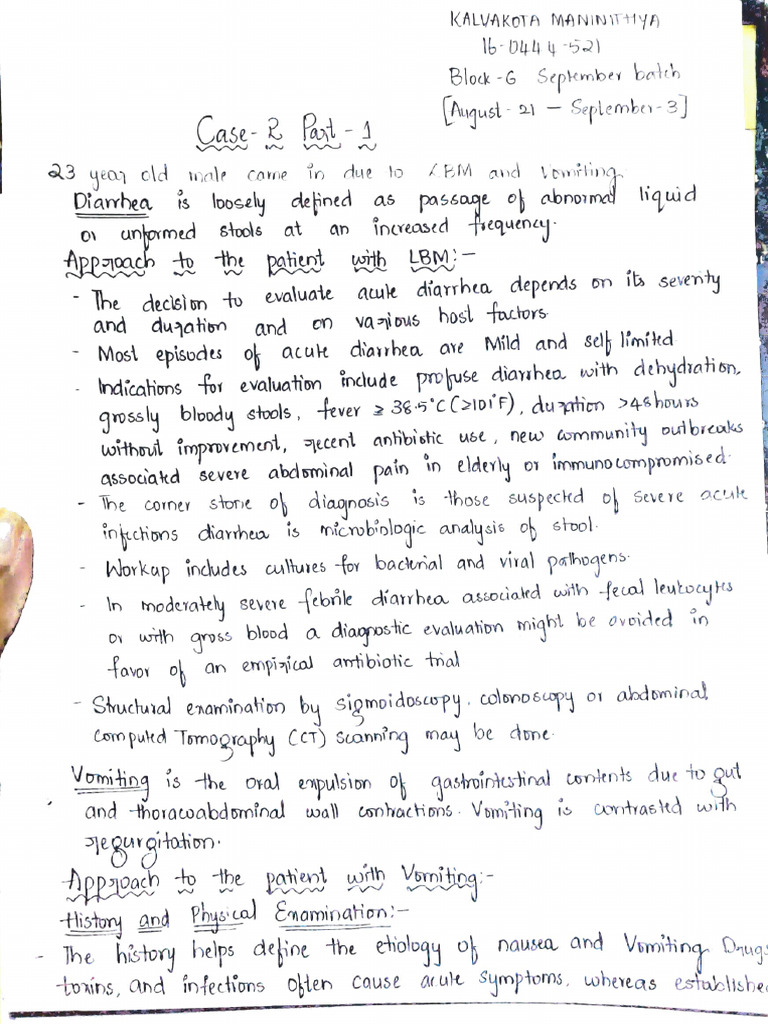 KALVAKOTA MANINITHYA
16-0444-521
Block-6 September batch
[August-21 — September-3]
Case-2 Part-1
23 year old male came in due to LBM and Vomiting.
Diarrhea is loosely defined as passage of abnormal liquid
or unformed stools at an increased frequency.
Approach to the patient with LBM:-
- The decision to evaluate acute diarrhea depends on its severity
and duration and on various host factors.
- Most episodes of acute diarrhea are Mild and self limited
- Indications for evaluation include profuse diarrhea with dehydration,
grossly bloody stools, fever ≥ 38.5°C (≥101°F), duration >48hours
without improvement, recent antibiotic use, new community outbreaks
associated severe abdominal pain in elderly or immunocompromised.
- The corner stone of diagnosis is those suspected of severe acute
infections diarrhea is microbiologic analysis of stool.
- Workup includes cultures for bacterial and viral pathogens.
- In moderately severe febrile diarrhea associated with fecal leukocytes
or with gross blood a diagnostic evaluation might be avoided in
favor of an empirical antibiotic trial
- Structural examination by sigmoidoscopy, colonoscopy or abdominal
Computed Tomography (CT) scanning may be done.
Vomiting is the oral expulsion of gastrointestinal contents due to gut
and thoracoabdominal wall contractions. Vomiting is contrasted with
regurgitation.
Approach to the patient with Vomiting:-
History and Physical Examination:-
- The history helps define the etiology of nausea and Vomiting. Drugs
toxins, and infections often cause acute symptoms, whereas establishe